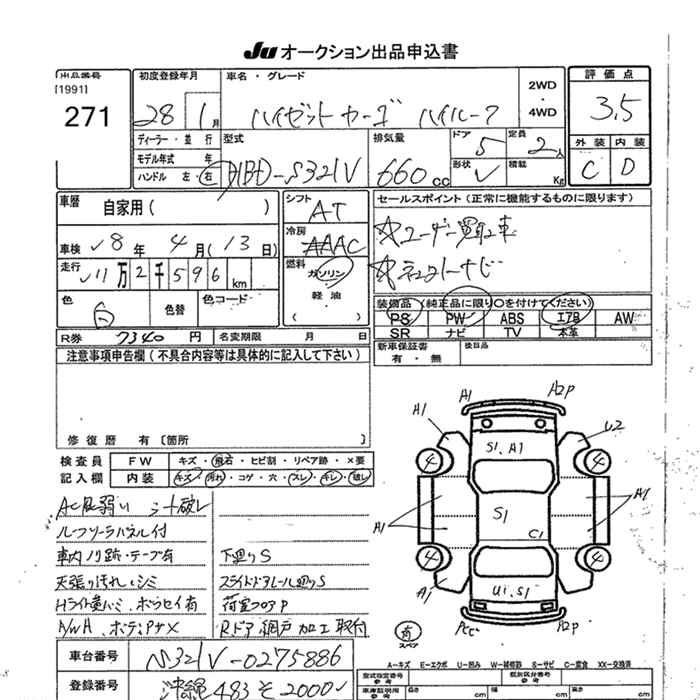 Ju オークション出品申込書
出品番号
[1991]
271
初度登録年月
28 1月
車名・グレード
ハイゼットカーゴ ハイルーフ
2WD
・
4WD
評価点
3.5
外装 内装
C D
ディーラー・並行
モデル年式 年
ハンドル 左・右
型式
HBD-S321V
排気量
660cc
ドア
5
定員
2人
形状
積載
Kg
車歴
自家用( )
車検 18年 4月(13日)
走行
11万2千596km
色
白
色替
色コード
シフト
AT
冷房
AAC
燃料
ガソリン
・
軽油
( )
セールスポイント(正常に機能するものに限ります)
☆ユーザー買取車
☆ネクストレーナビ
装備品(純正品に限り○を付けてください)
PS PW ABS エアB AW
SR ナビ TV 本革
R券 7340円
名変期限 月 日
新車保証書
有・無
後日品
注意事項申告欄(不具合内容等は具体的に記入して下さい)
修復歴 有〔箇所 〕
検査員
記入欄
FW キズ・飛石・ヒビ割・リペア跡・×要
内装 キズ・汚れ・コゲ・穴・スレ・キレ・破レ
AC風弱い シート破レ
ルーフソーラパネル付
車内ノリ跡・テープ有
天張り汚れ・シミ
Hライト黄バミ、ボラセイ有
下廻りS
スライドドアレール廻りS
荷室フロアP
Rドア網戸加工取付
A1 A2P
A1 U2
S1, A1
4 4
A1 S1 A1
C1
4 4
A1 U1, S1
Pcc A2P
有
スペア
車台番号 S321V-0275886
登録番号 沖縄 483 そ 2000
A-キズ E-エクボ U-凹み W-補修跡 S-サビ C-腐食 XX-交換済
型式指定番号
参考
類別区分番号
参考
車庫証明用
参考
長さ cm
幅 cm
高さ cm